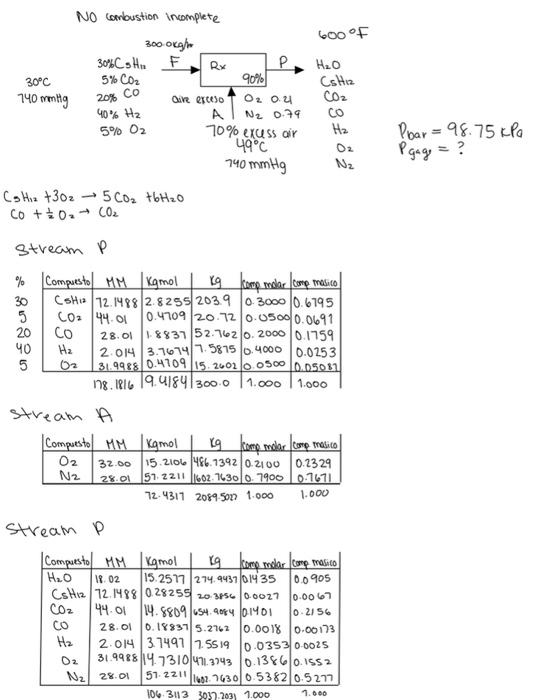 NO combustion incomplete
600°F
300.0kg/hr
30% C5H12 F Rx P H2O
30°C 5% CO2 90% C5H12
740 mmHg 20% CO aire exceso O2 0.21 CO2
40% H2 A N2 0.79 CO
5% O2 70% excess air H2
49°C O2
740 mmHg N2
Pbar = 98.75 kPa
Pgage = ?
C5H12 + 3O2 → 5CO2 + 6H2O
CO + ½ O2 → CO2
Stream P
% Compuesto MM Kgmol Kg Comp molar Comp masico
30 C5H12 72.1488 2.8255 203.9 0.3000 0.6795
5 CO2 44.01 0.4709 20.72 0.0500 0.0691
20 CO 28.01 1.8837 52.762 0.2000 0.1759
40 H2 2.014 3.7674 7.5875 0.4000 0.0253
5 O2 31.9988 0.4709 15.2602 0.0500 0.05087
178.1816 9.4184 300.0 1.000 1.000
Stream A
Compuesto MM Kgmol Kg Comp molar Comp masico
O2 32.00 15.2106 486.7392 0.2100 0.2329
N2 28.01 57.2211 1602.7630 0.7900 0.7671
72.4317 2089.5022 1.000 1.000
Stream P
Compuesto MM Kgmol Kg Comp molar Comp masico
H2O 18.02 15.2577 274.9437 0.1435 0.0905
C5H12 72.1488 0.28255 20.3856 0.0027 0.0067
CO2 44.01 14.8809 654.9084 0.1401 0.2156
CO 28.01 0.18837 5.2762 0.0018 0.00173
H2 2.014 3.7497 7.5519 0.0353 0.0025
O2 31.9988 14.7310 471.3743 0.1386 0.1552
N2 28.01 57.2211 1602.7630 0.5382 0.5277
106.3113 3037.2031 1.000 1.000